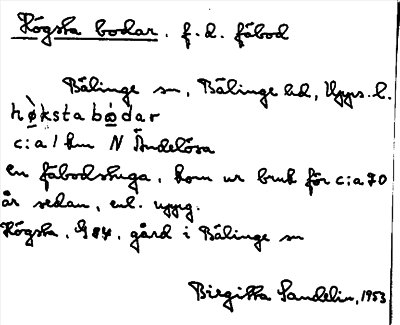 Högsta bodar. f.d. fäbod
Bälinge sn, Bälinge hd, Upps. l.
hø̀ksta bø̀dar
c:a 1 km N Åndelösa
en fäbodstuga, kom ur bruk för c:a 70
år sedan, enl. uppg.
Högsta, gård i Bälinge sn
Birgitta Sandelin, 1953